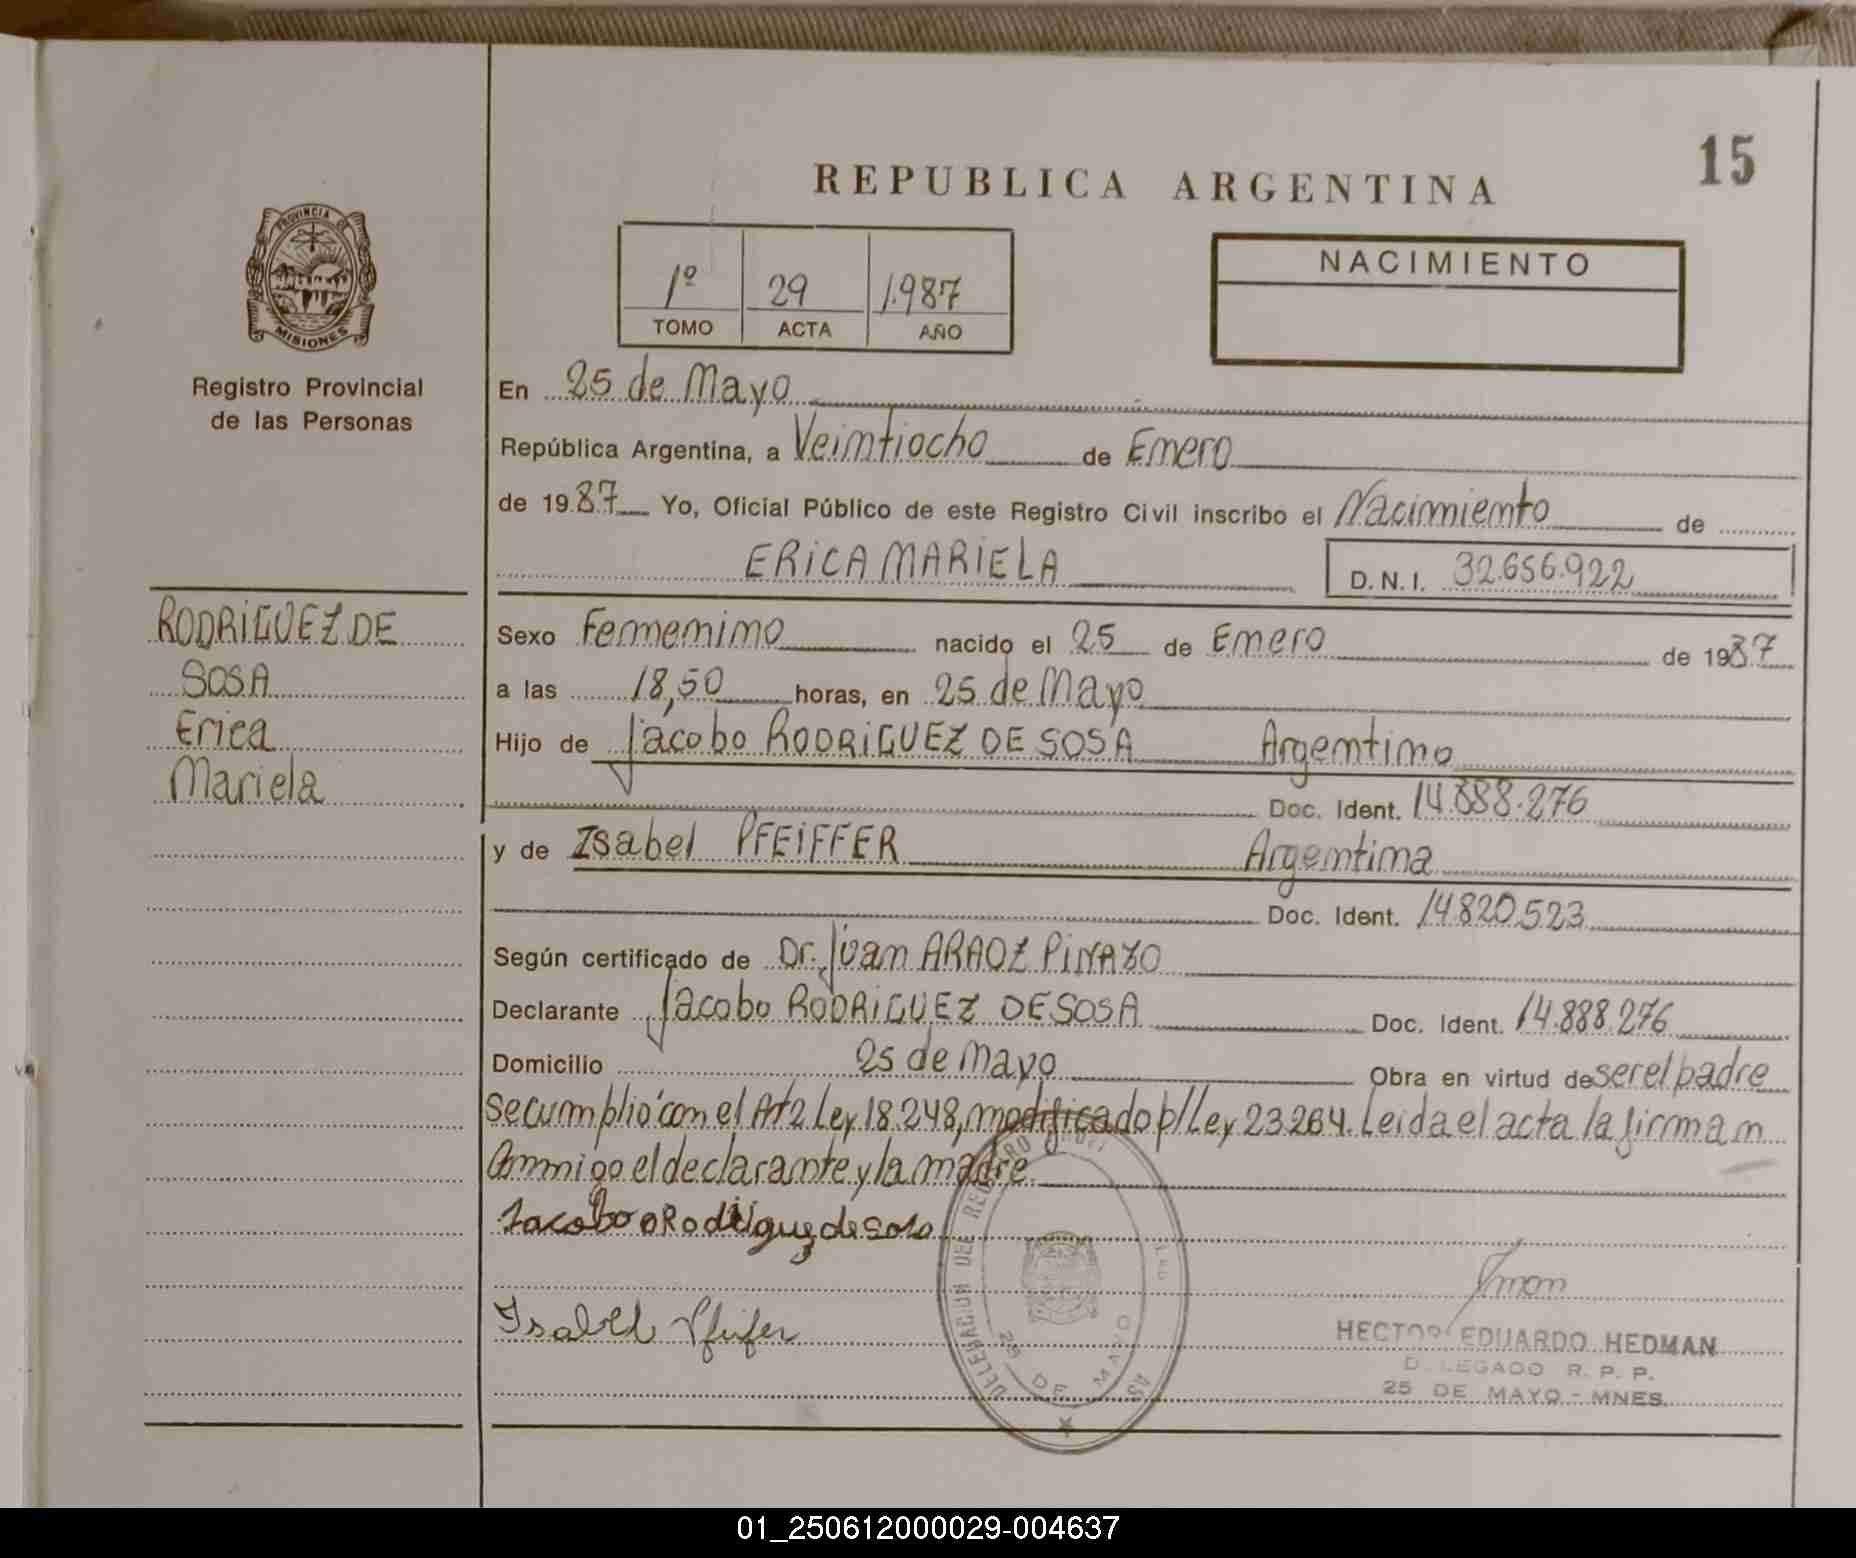 15
REPUBLICA ARGENTINA
PROVINCIA DE
MISIONES
Registro Provincial
de las Personas
1º 29 1.987
TOMO ACTA AÑO
NACIMIENTO
En 25 de Mayo
República Argentina, a Veintiocho de Enero
de 1987 Yo, Oficial Público de este Registro Civil inscribo el Nacimiento de
ERICA MARIELA D.N.I. 32.656.922
RODRIGUEZ DE
SOSA
Erica
Mariela
Sexo Femenino nacido el 25 de Enero de 1987
a las 18,50 horas, en 25 de Mayo
Hijo de Jacobo RODRIGUEZ DE SOSA Argentino
Doc. Ident. 14.888.276
y de Isabel PFEIFFER Argentina
Doc. Ident. 14.820.523
Según certificado de Dr. Juan ARAOZ PINAZO
Declarante Jacobo RODRIGUEZ DE SOSA Doc. Ident. 14.888.276
Domicilio 25 de Mayo Obra en virtud de ser el padre
Se cumplió con el Art 2 Ley 18.248, modificado p/Ley 23.264. Leida el acta la firman
Conmigo el declarante y la madre.
Jacobo Rodriguez de Sosa
Isabel Pfeifer
DELEGACION DEL REGISTRO
25 DE MAYO
HECTOR EDUARDO HEDMAN
DELEGADO R. P. P.
25 DE MAYO - MNES.
01_250612000029-004637